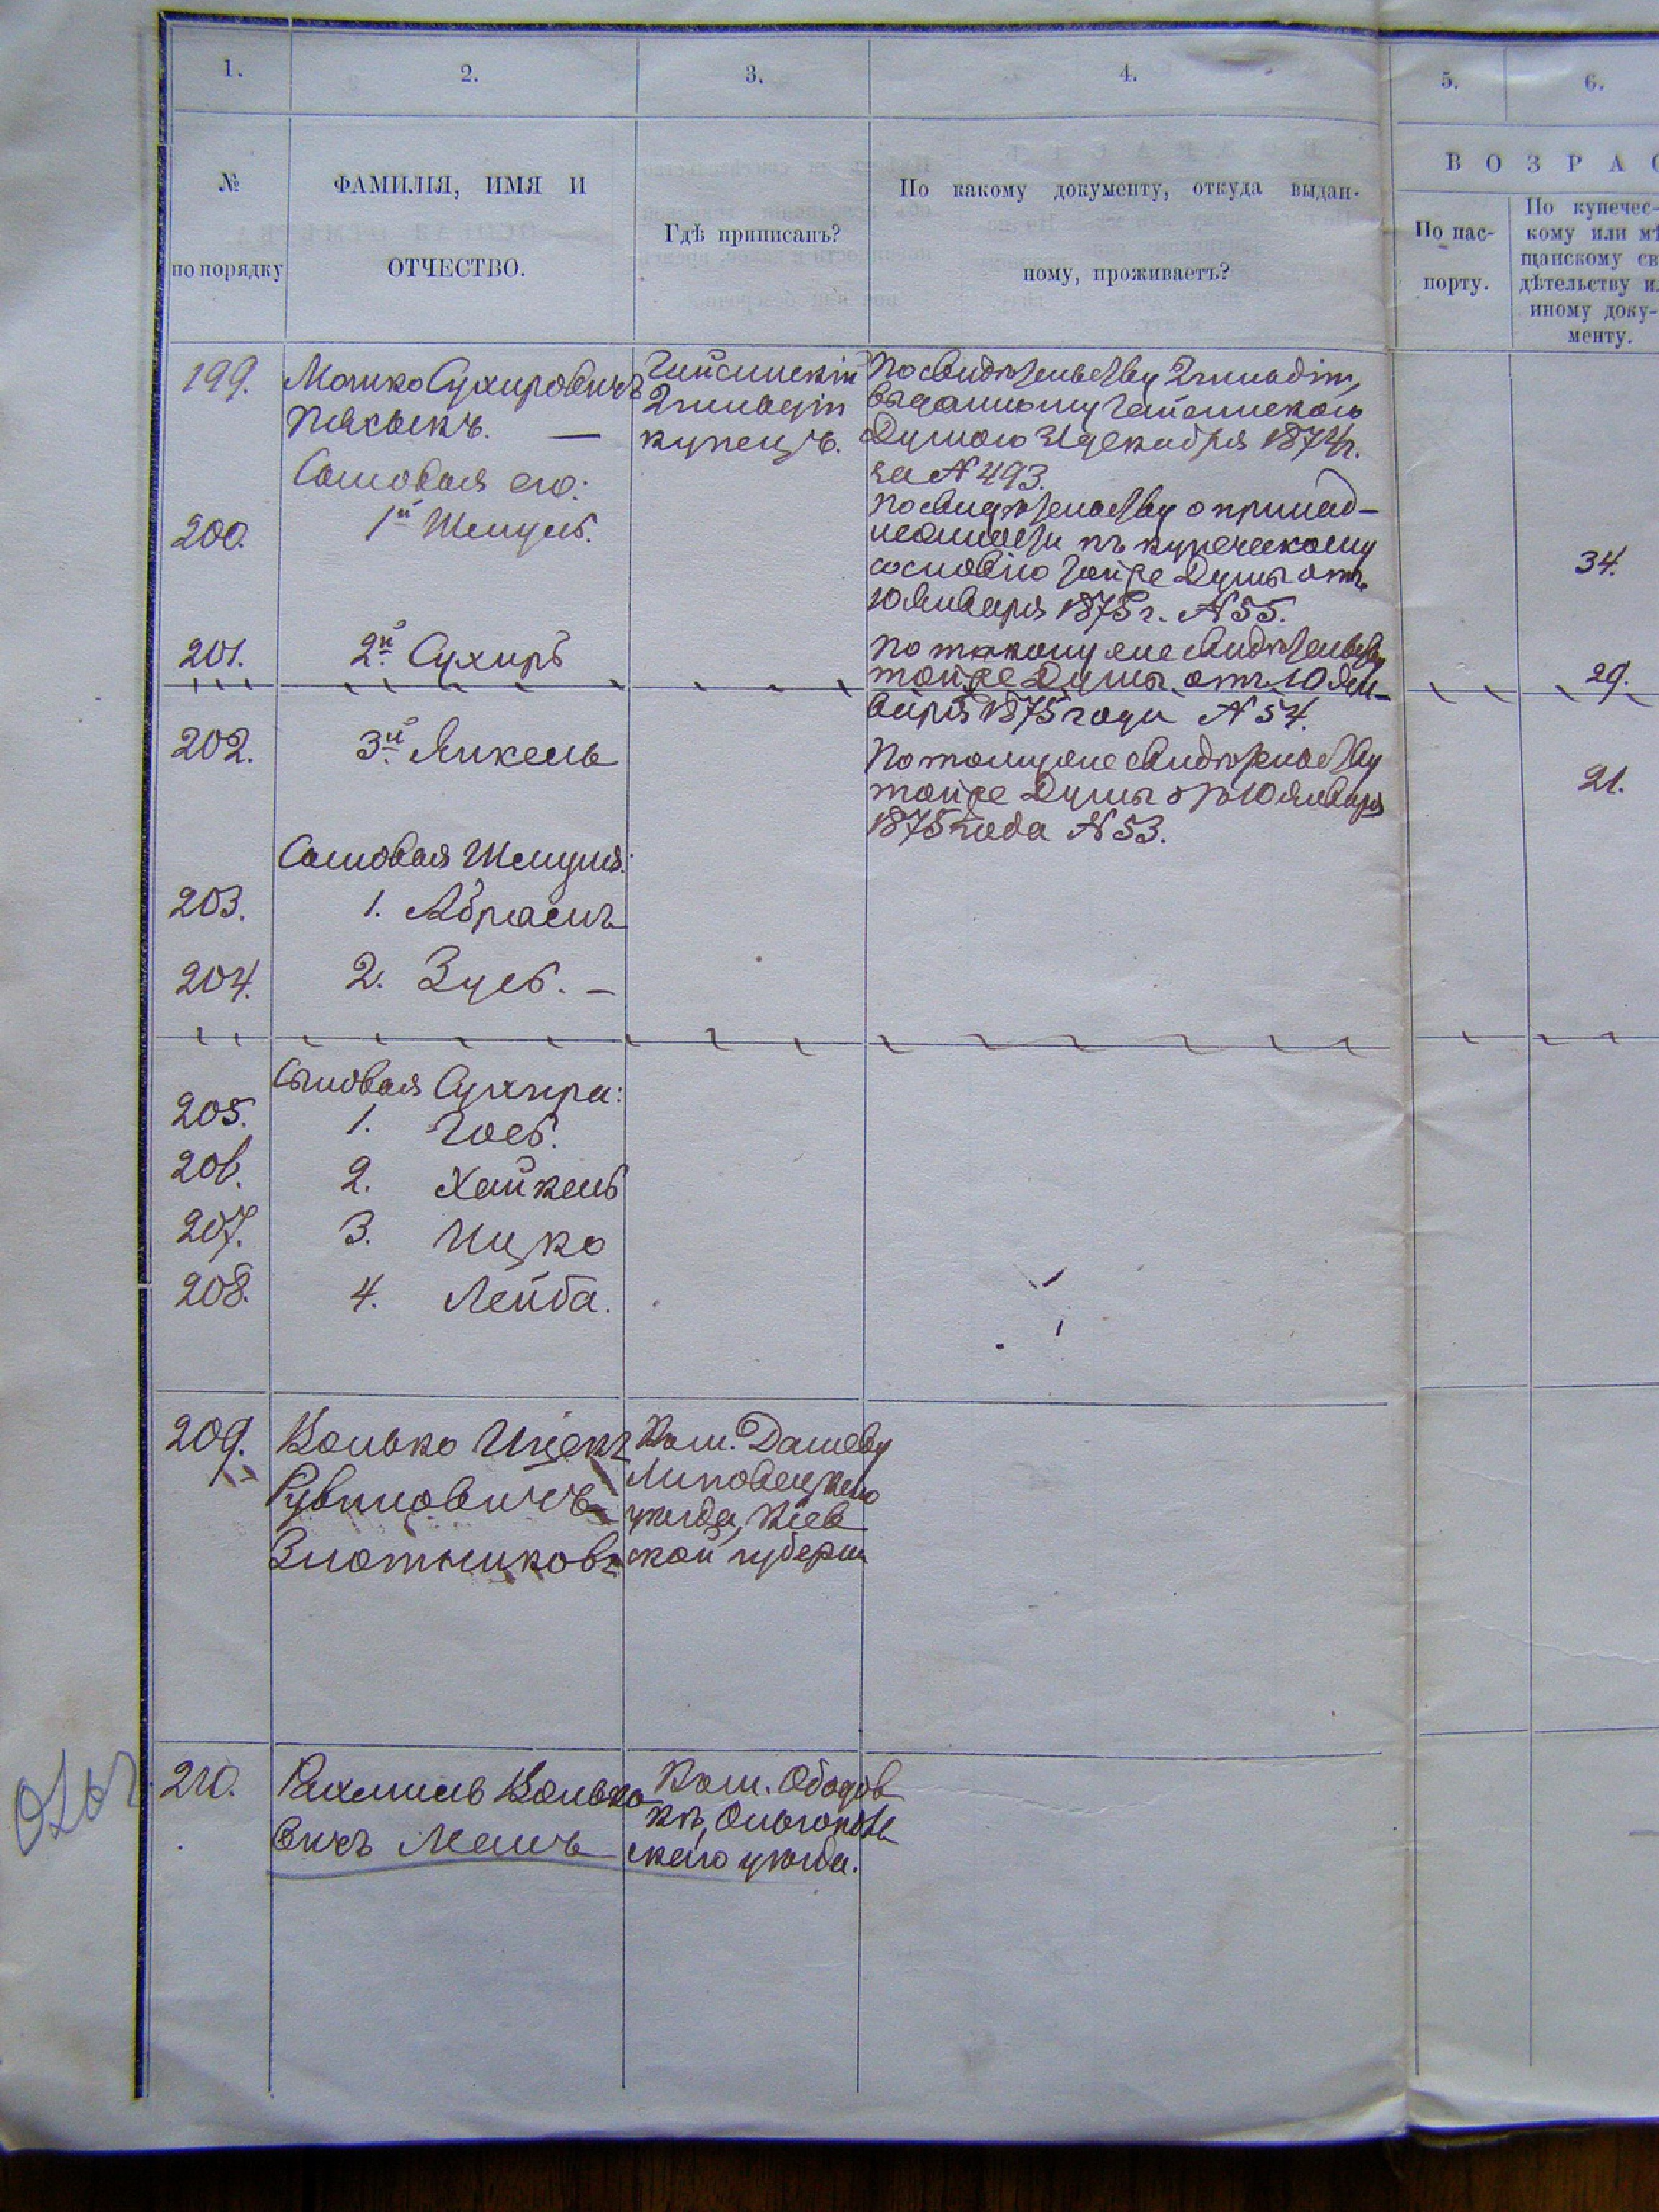 1.
2.
3.
4.
5.
6.
№
по порядку
ФАМИЛІЯ, ИМЯ И
ОТЧЕСТВО.
Гдѣ приписанъ?
По какому документу, откуда выдан-
ному, проживаетъ?
ВОЗРАС
По пас-
порту.
По купечес-
кому или мѣ
щанскому св
дѣтельству и
иному доку-
менту.
199.
Мошко Сухировичъ
Гайсинскій
2 гильдіи
купецъ.
По свидѣтельству 2 гильдіи,
выданному Гайсинскою
Думою 31 декабря 1874 г.
за № 493.
Сыновья его:
200.
1й Шмуль.
По свидѣтельству о принад-
лежности къ купеческому
сословію той же Думы отъ
10 Января 1875 г. № 55.
34.
201.
2й Сухиръ
По такому же свидѣтельству
той же Думы отъ 10 Ян-
варя 1875 года № 54.
29.
202.
3й Янкель
По тому же свидѣтельству
той же Думы отъ 10 Января
1875 года № 53.
21.
Сыновья Шмуля:
203.
1. Абрамъ
204.
2. Зусь. —
Сыновья Сухира:
205.
1.
206.
2. Хайкель
207.
3. Ицко
208.
4. Лейба.
209.
Волько Ицекъ
Рувиновичъ
Злотниковъ
Въ м. Дашеву
Липовецкаго
уѣзда, Кіев
ской губерніи
210.
Рахмиль Волько
вичъ
Въ м. Ободов
кѣ, Ольгополь
скаго уѣзда.